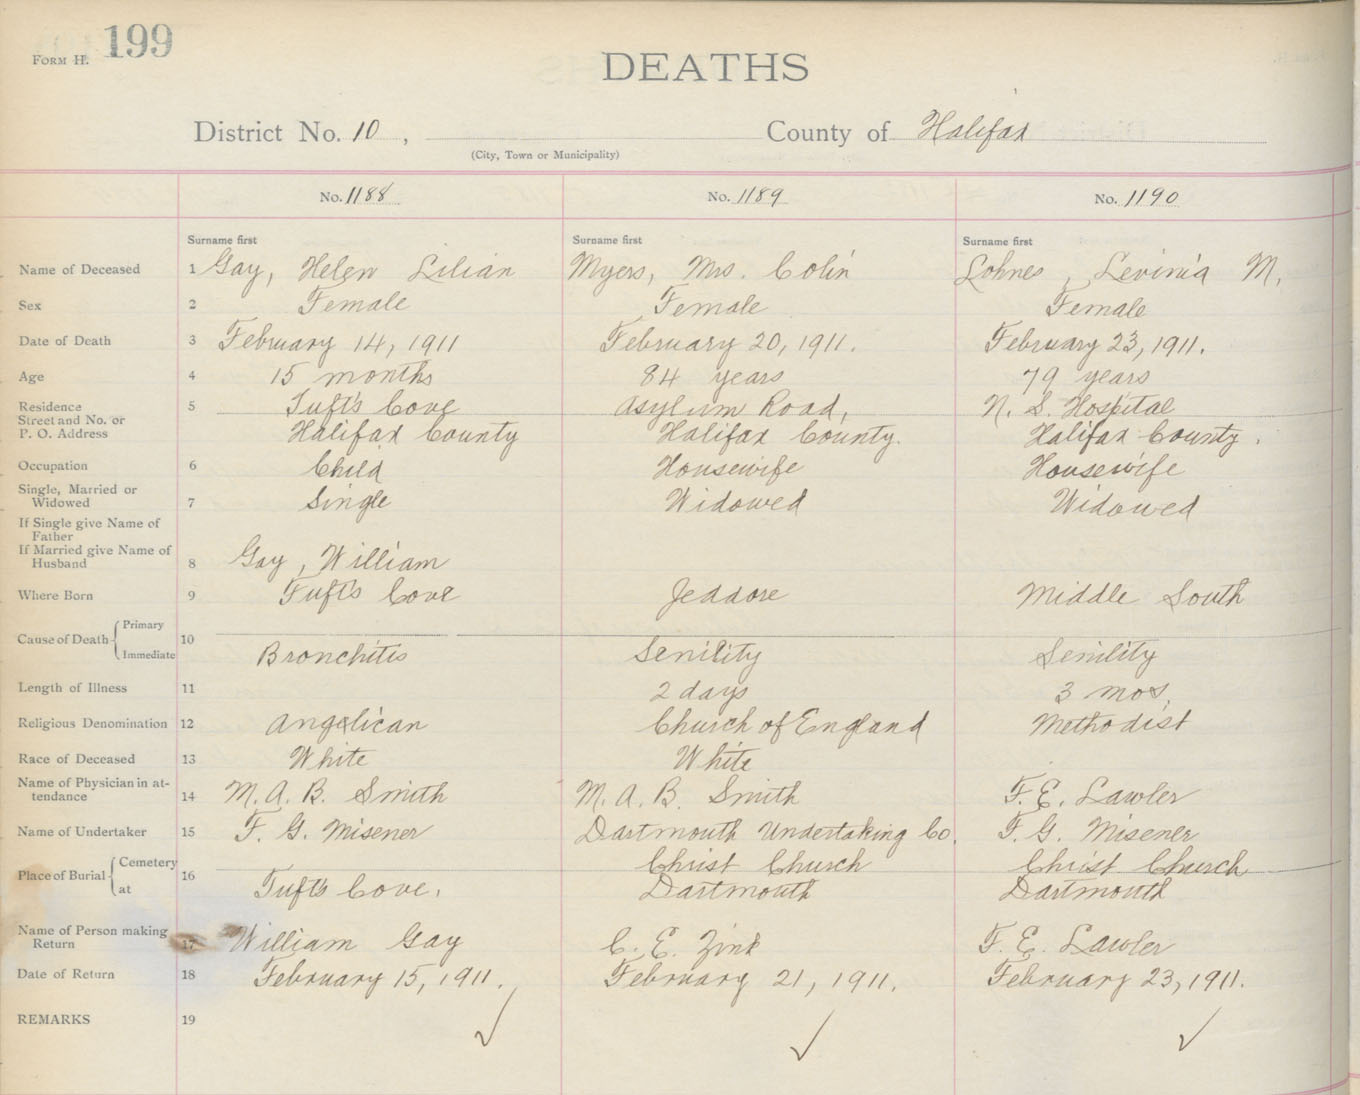 FORM H. 199
DEATHS
District No. 10 , County of Halifax
(City, Town or Municipality)
No. 1188 No. 1189 No. 1190
Surname first Surname first Surname first
Name of Deceased 1 Gay, Helen Lilian Myers, Mrs. Colin Lohnes, Levinia M,
Sex 2 Female Female Female
Date of Death 3 February 14, 1911 February 20, 1911. February 23, 1911.
Age 4 15 months 84 years 79 years
Residence 5 Tuft's Cove Asylum Road, N. S. Hospital
Street and No. or
P. O. Address Halifax County Halifax County. Halifax County.
Occupation 6 Child Housewife Housewife
Single, Married or
Widowed 7 Single Widowed Widowed
If Single give Name of
Father
If Married give Name of
Husband 8 Gay, William
Where Born 9 Tuft's Cove Jeddore Middle South
Cause of Death Primary 10
Immediate Bronchitis Senility Senility
Length of Illness 11 2 days 3 mos.
Religious Denomination 12 Anglican Church of England Methodist
Race of Deceased 13 White White
Name of Physician in at-
tendance 14 M. A. B. Smith M. A. B. Smith F. E. Lawler
Name of Undertaker 15 F. G. Misener Dartmouth Undertaking Co. F. G. Misener
Place of Burial Cemetery 16 Christ Church Christ Church
at Tuft's Cove. Dartmouth Dartmouth
Name of Person making
Return 17 William Gay C. E. Zink F. E. Lawler
Date of Return 18 February 15, 1911. February 21, 1911. February 23, 1911.
REMARKS 19 ✓ ✓ ✓